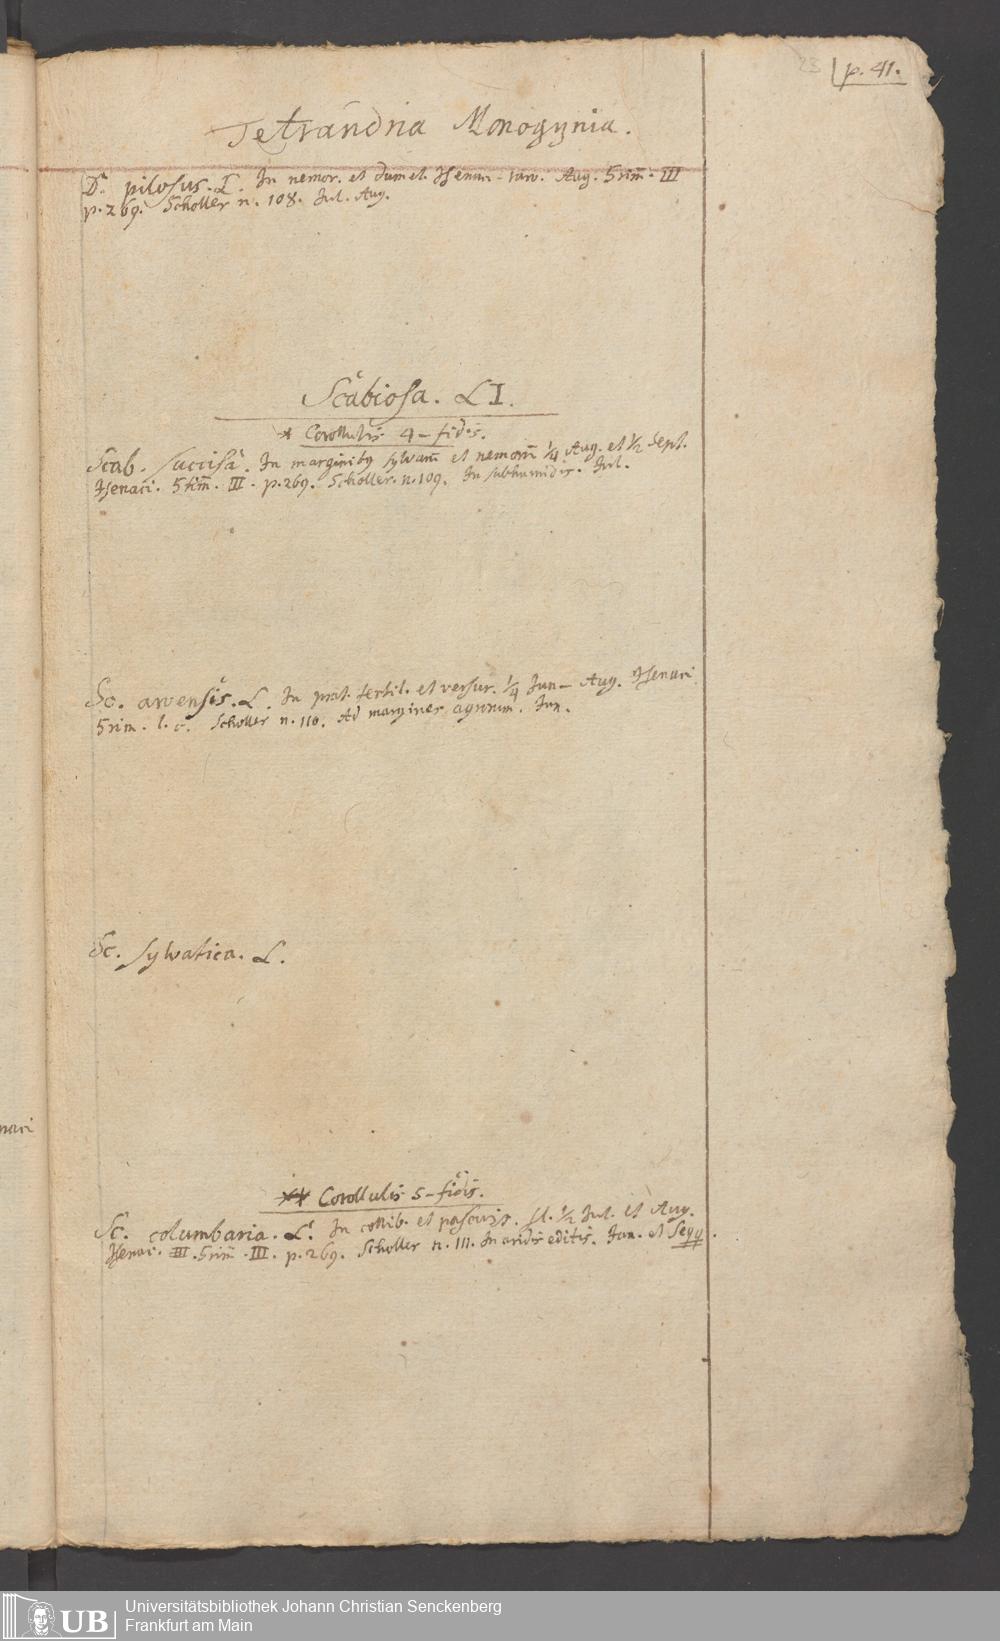 23 p. 41.
Tetrandria Monogynia.
D. pilosus. L. In nemor. et dumet. Isenac - rar. Aug. Grim. III
p. 269. Scholler n. 108. Jul. Aug.
Scabiosa. LI.
* Corollulis 4-fidis.
Scab. succisa. In marginibg sylvarū et nemorū ¼ Aug. et ½ Sept.
Isenaci. Grim. III. p. 269. Scholler. n. 109. In subhumidis. Jul.
Sc. arvensis. L. In prat. fertil. et versur. ¼ Jun - Aug. Isenaci
Grim. l. c. Scholler n. 110. Ad margines agrorum. Jun.
Sc. sylvatica. L.
** Corollulis 5-fidis.
Sc. columbaria. L. In collib. et pascuis. fl. ½ Jul. et Aug.
Isenac. III. Grim. III. p. 269. Scholler n. 111. In aridis editis. Jun. et Seqq.
naci
UB Universitätsbibliothek Johann Christian Senckenberg
Frankfurt am Main